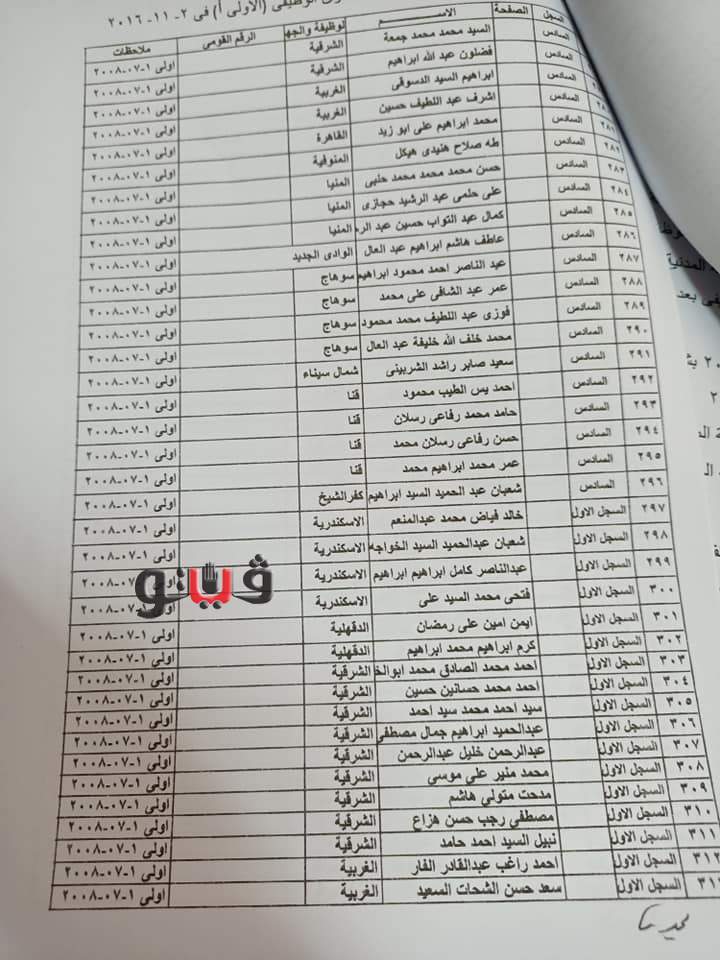 الوظيفى (الأولى أ) فى ٢- ١١- ٢٠١٦
السجل الصفحة الاســـــم الوظيفة والجه الرقم القومى ملاحظات
السادس السيد محمد محمد جمعة الشرقية اولى ١-٠٧-٢٠٠٨
السادس فضلون عبد الله ابراهيم الشرقية اولى ١-٠٧-٢٠٠٨
السادس ابراهيم السيد الدسوقى الغربية اولى ١-٠٧-٢٠٠٨
السادس اشرف عبد اللطيف حسين الغربية اولى ١-٠٧-٢٠٠٨
السادس محمد ابراهيم على ابو زيد القاهرة اولى ١-٠٧-٢٠٠٨
٢٨٢ السادس طه صلاح هنيدى هيكل المنوفية اولى ١-٠٧-٢٠٠٨
٢٨٣ السادس حسن محمد محمد محمد حلبى المنيا اولى ١-٠٧-٢٠٠٨
٢٨٤ السادس على حلمى عبد الرشيد حجازى المنيا اولى ١-٠٧-٢٠٠٨
٢٨٥ السادس كمال عبد التواب حسين عبد الر المنيا اولى ١-٠٧-٢٠٠٨
٢٨٦ السادس عاطف هاشم ابراهيم عبد العال الوادى الجديد اولى ١-٠٧-٢٠٠٨
٢٨٧ السادس عبد الناصر احمد محمود ابراهيم سوهاج اولى ١-٠٧-٢٠٠٨
٢٨٨ السادس عمر عبد الشافى على محمد سوهاج اولى ١-٠٧-٢٠٠٨
٢٨٩ السادس فوزى عبد اللطيف محمد محمود سوهاج اولى ١-٠٧-٢٠٠٨
٢٩٠ السادس محمد خلف الله خليفة عبد العال سوهاج اولى ١-٠٧-٢٠٠٨
٢٩١ السادس سعيد صابر راشد الشربينى شمال سيناء اولى ١-٠٧-٢٠٠٨
٢٩٢ السادس احمد يس الطيب محمود قنا اولى ١-٠٧-٢٠٠٨
٢٩٣ السادس حامد محمد رفاعى رسلان قنا اولى ١-٠٧-٢٠٠٨
٢٩٤ السادس حسن رفاعى رسلان محمد قنا اولى ١-٠٧-٢٠٠٨
٢٩٥ السادس عمر محمد ابراهيم محمد قنا اولى ١-٠٧-٢٠٠٨
٢٩٦ السادس شعبان عبد الحميد السيد ابراهيم كفرالشيخ اولى ١-٠٧-٢٠٠٨
٢٩٧ السجل الاول خالد فياض محمد عبدالمنعم الاسكندرية اولى ١-٠٧-٢٠٠٨
٢٩٨ السجل الاول شعبان عبدالحميد السيد الخواجه الاسكندرية اولى ١-٠٧-٢٠٠٨
٢٩٩ السجل الاول عبدالناصر كامل ابراهيم ابراهيم الاسكندرية اولى ١-٠٧
٣٠٠ السجل الاول فتحى محمد السيد على الاسكندرية اولى ١-٠٧-٢٠٠٨
فيتو
٣٠١ السجل الاول ايمن امين على رمضان الدقهلية اولى ١-٠٧-٢٠٠٨
٣٠٢ السجل الاول كرم ابراهيم محمد ابراهيم الدقهلية اولى ١-٠٧-٢٠٠٨
٣٠٣ السجل الاول احمد محمد الصادق محمد ابوالخ الشرقية اولى ١-٠٧-٢٠٠٨
٣٠٤ السجل الاول احمد محمد حسانين حسين الشرقية اولى ١-٠٧-٢٠٠٨
٣٠٥ السجل الاول سيد احمد محمد سيد احمد الشرقية اولى ١-٠٧-٢٠٠٨
٣٠٦ السجل الاول عبدالحميد ابراهيم جمال مصطفى الشرقية اولى ١-٠٧-٢٠٠٨
٣٠٧ السجل الاول عبدالرحمن خليل عبدالرحمن الشرقية اولى ١-٠٧-٢٠٠٨
٣٠٨ السجل الاول محمد منير على موسى الشرقية اولى ١-٠٧-٢٠٠٨
٣٠٩ السجل الاول مدحت متولى هاشم الشرقية اولى ١-٠٧-٢٠٠٨
٣١٠ السجل الاول مصطفى رجب حسن هزاع الشرقية اولى ١-٠٧-٢٠٠٨
٣١١ السجل الاول نبيل السيد احمد حامد الشرقية اولى ١-٠٧-٢٠٠٨
٣١٢ السجل الاول احمد راغب عبدالقادر الفار الغربية اولى ١-٠٧-٢٠٠٨
السجل الاول سعد حسن الشحات السعيد الغربية اولى ١-٠٧-٢٠٠٨
المدنية
بعد